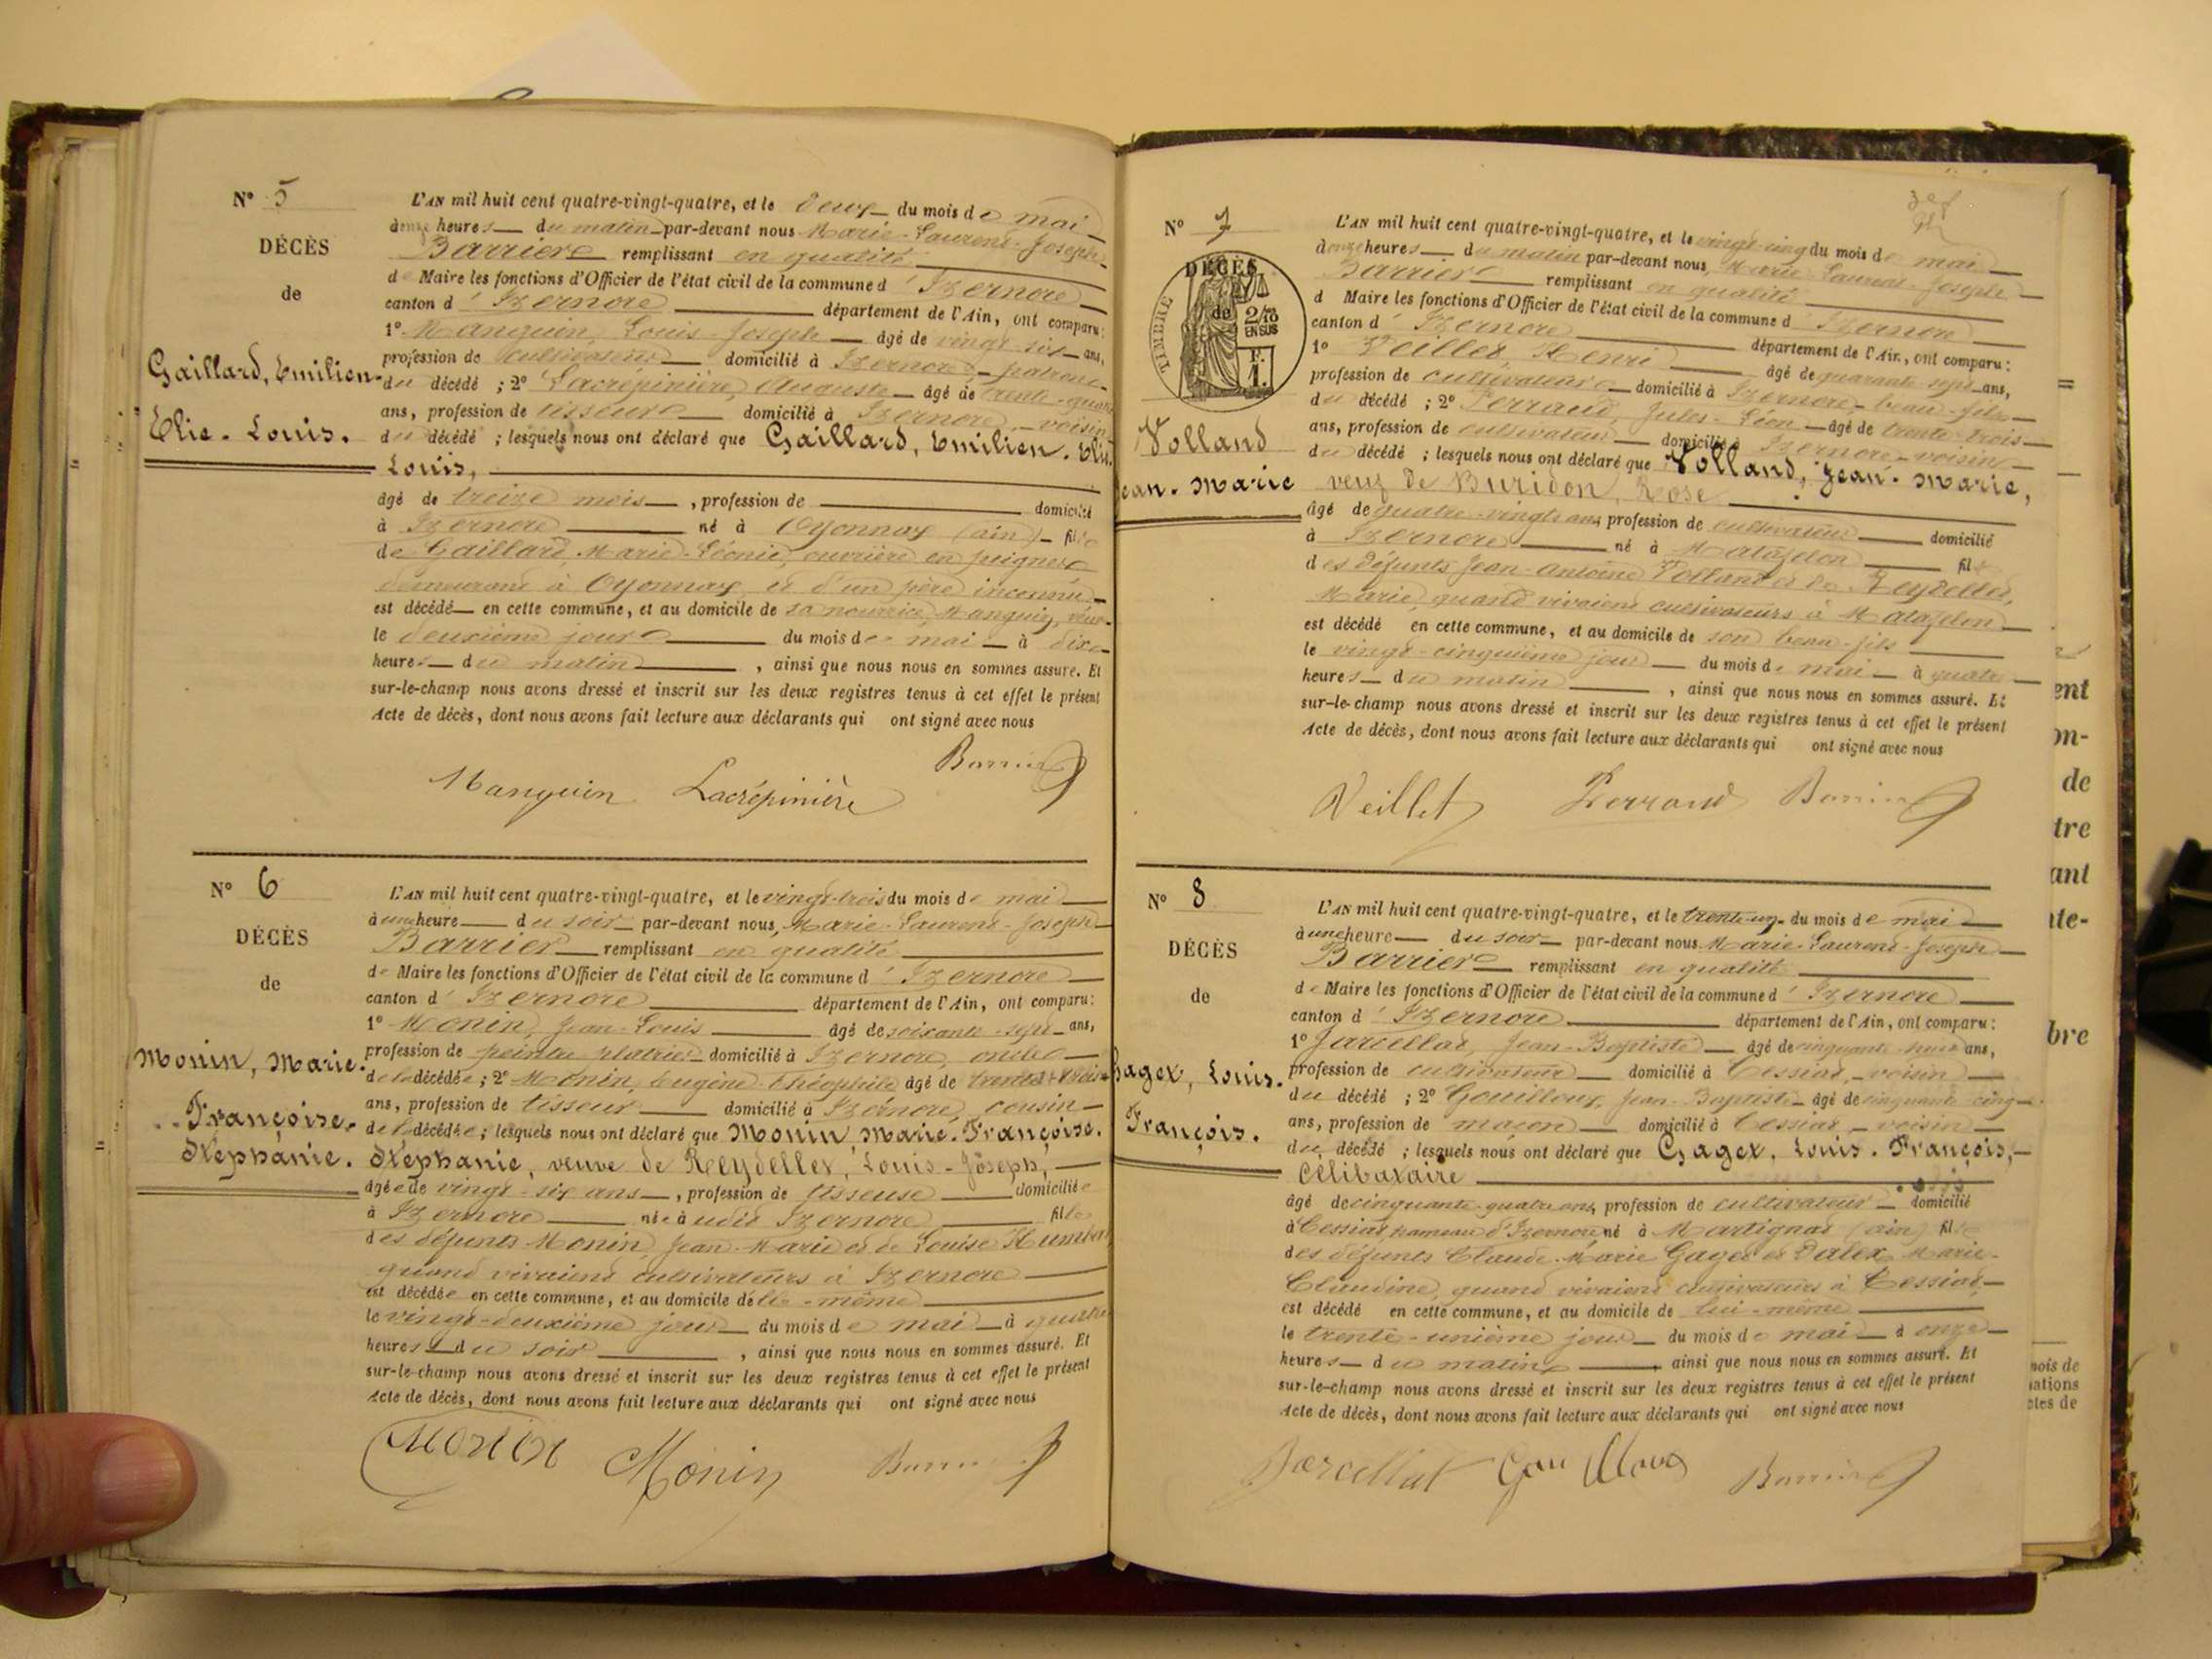 N° 5
DÉCÈS
de
Gaillard, Emilien-
Elie-Louis.
L'AN mil huit cent quatre-vingt-quatre, et le deux du mois de mai
à onze heures du matin par-devant nous Marie-Laurent-Joseph
Barrier remplissant en qualité
de Maire les fonctions d'Officier de l'état civil de la commune d'Izernore
canton d'Izernore département de l'Ain, ont comparu:
1° Manguin, Louis-Joseph âgé de vingt-six ans,
profession de cultivateur domicilié à Izernore, patron
du décédé ; 2° Lacrépinière, Auguste âgé de trente-quatre
ans, profession de tisseur domicilié à Izernore, voisin
du décédé ; lesquels nous ont déclaré que Gaillard, Emilien-Elie-
Louis,
âgé de treize mois, profession de domicilié
à Izernore né à Oyonnax (ain) fils
de Gaillard, Marie-Léonie, ouvrière en peignes
demeurant à Oyonnax, et d'un père inconnu
est décédé en cette commune, et au domicile de sa nourrice, Manguin,
le deuxième jour du mois de mai à dix
heures du matin, ainsi que nous nous en sommes assuré. Et
sur-le-champ nous avons dressé et inscrit sur les deux registres tenus à cet effet le présent
Acte de décès, dont nous avons fait lecture aux déclarants qui ont signé avec nous
Manguin Lacrépinière Barrier
N° 6
DÉCÈS
de
Monin, Marie-
Françoise-
Stéphanie.
L'AN mil huit cent quatre-vingt-quatre, et le vingt-trois du mois de mai
à une heure du soir par-devant nous, Marie-Laurent-Joseph
Barrier remplissant en qualité
de Maire les fonctions d'Officier de l'état civil de la commune d'Izernore
canton d'Izernore département de l'Ain, ont comparu:
1° Monin, Jean-Louis âgé de soixante-sept ans,
profession de peintre plâtrier domicilié à Izernore, oncle
de la décédée ; 2° Monin, Eugène-Théophile âgé de trente-trois
ans, profession de tisseur domicilié à Izernore, cousin
de la décédée ; lesquels nous ont déclaré que Monin Marie-Françoise-
Stéphanie, veuve de Reydellet, Louis-Joseph,
âgée de vingt-six ans, profession de tisseuse domiciliée
à Izernore née audit Izernore fille
des défunts Monin, Jean-Marie et de Louise Humbert
quand vivaient cultivateurs à Izernore
est décédée en cette commune, et au domicile d'elle-même
le vingt-deuxième jour du mois de mai à quatre
heures du soir, ainsi que nous nous en sommes assuré. Et
sur-le-champ nous avons dressé et inscrit sur les deux registres tenus à cet effet le présent
Acte de décès, dont nous avons fait lecture aux déclarants qui ont signé avec nous
Monin Monin Barrier
N° 7
DÉCÈS
de
TIMBRE
2/10
EN SUS
F.
1.
Volland
Jean-Marie
L'AN mil huit cent quatre-vingt-quatre, et le vingt-cinq du mois de mai
à onze heures du matin par-devant nous, Marie-Laurent-Joseph
Barrier remplissant en qualité
d Maire les fonctions d'Officier de l'état civil de la commune d'Izernore
canton d'Izernore département de l'Ain, ont comparu:
1° Veillet, Henri âgé de quarante-sept ans,
profession de cultivateur domicilié à Izernore, beau-fils
du décédé ; 2° Perraud, Jules-Léon âgé de trente-trois
ans, profession de cultivateur domicilié à Izernore, voisin
du décédé ; lesquels nous ont déclaré que Volland, Jean-Marie,
veuf de Buridon, Rose
âgé de quatre-vingts ans, profession de cultivateur domicilié
à Izernore né à Matafelon fils
des défunts Jean-Antoine Volland et de Reydellet,
Marie, quand vivaient cultivateurs à Matafelon
est décédé en cette commune, et au domicile de son beau-fils
le vingt-cinquième jour du mois de mai à quatre
heures du matin, ainsi que nous nous en sommes assuré. Et
sur-le-champ nous avons dressé et inscrit sur les deux registres tenus à cet effet le présent
Acte de décès, dont nous avons fait lecture aux déclarants qui ont signé avec nous
Veillet Perraud Barrier
N° 8
DÉCÈS
de
Gagex, Louis-
François.
L'AN mil huit cent quatre-vingt-quatre, et le trente-un du mois de mai
à une heure du soir par-devant nous Marie-Laurent-Joseph
Barrier remplissant en qualité
de Maire les fonctions d'Officier de l'état civil de la commune d'Izernore
canton d'Izernore département de l'Ain, ont comparu:
1° Jean-Baptiste âgé de cinquante ans,
profession de cultivateur domicilié à Cessiat, voisin
du décédé ; 2° Gouilloux, Jean-Baptiste âgé de cinquante-cinq
ans, profession de maçon domicilié à Cessiat, voisin
du décédé ; lesquels nous ont déclaré que Gagex, Louis-François,
célibataire
âgé de cinquante-quatre ans, profession de cultivateur domicilié
à Cessiat, hameau d'Izernore né à Martignat (ain) fils
des défunts Claude-Marie Gagex et Marie-
Claudine, quand vivaient cultivateurs à Cessiat
est décédé en cette commune, et au domicile de lui-même
le trente-unième jour du mois de mai à onze
heures du matin, ainsi que nous nous en sommes assuré. Et
sur-le-champ nous avons dressé et inscrit sur les deux registres tenus à cet effet le présent
Acte de décès, dont nous avons fait lecture aux déclarants qui ont signé avec nous
Gouilloux Barrier
ent
on-
de
tre
ant
te-
bre
mois de
ations
ctes de